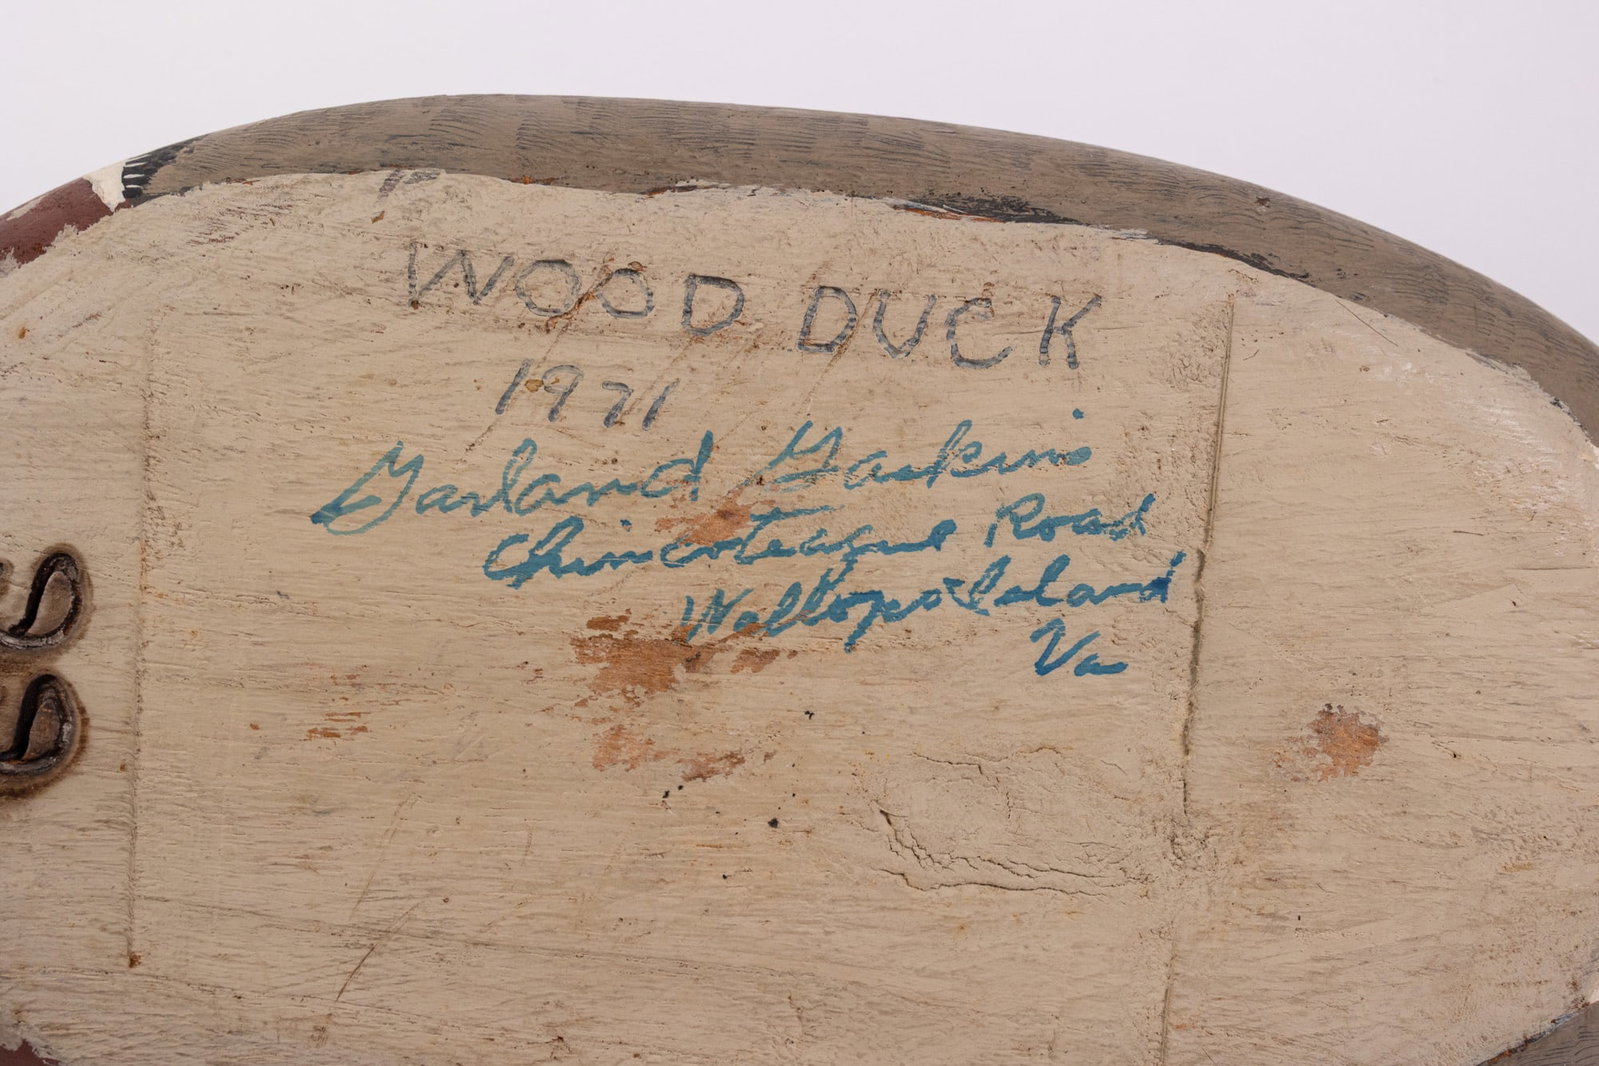 WOOD DUCK
1971
Garland Gaskins
Chincoteague Road
Wallops Island
Va